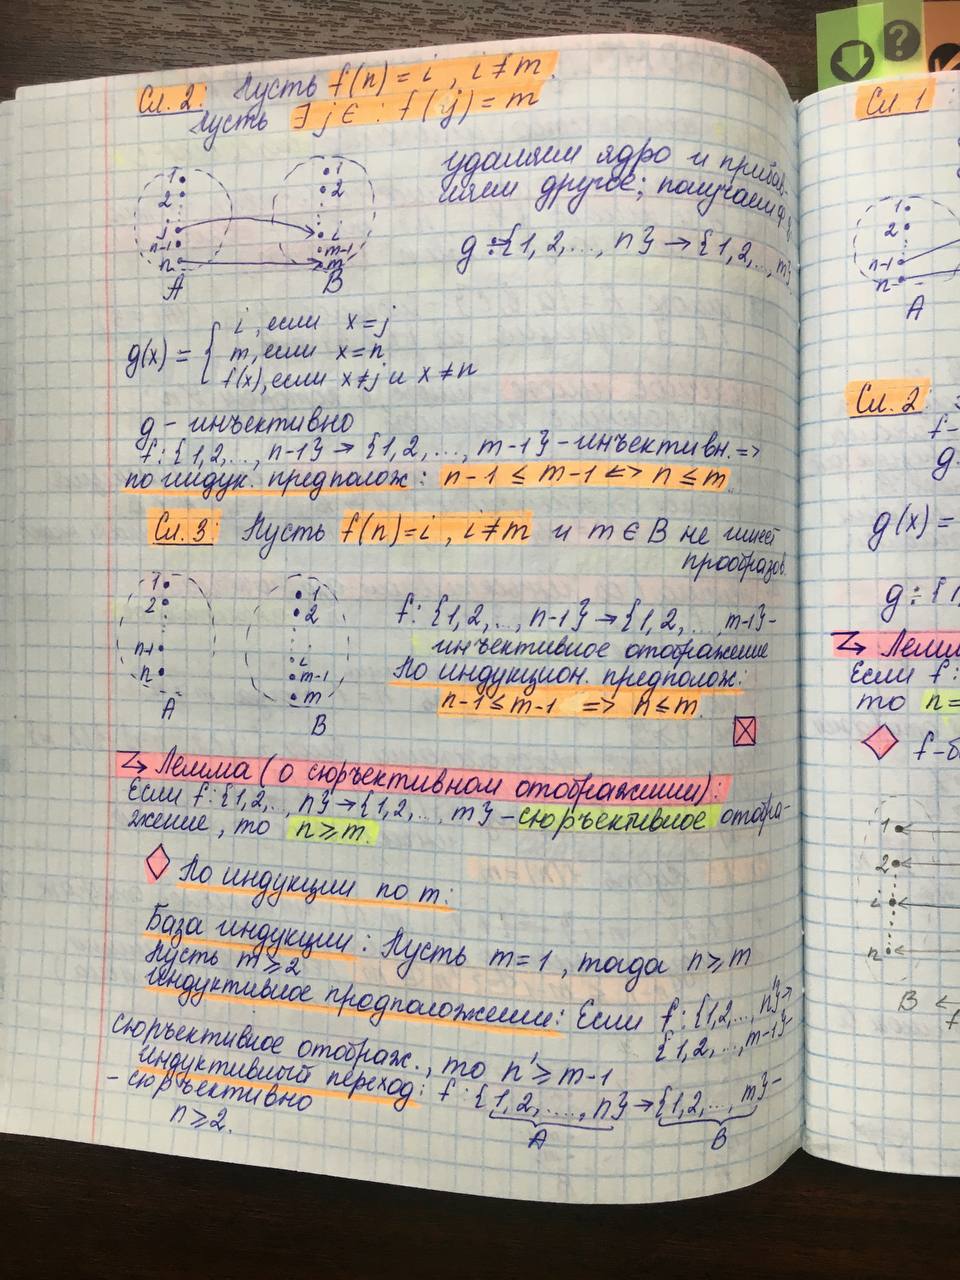 Сл. 2: Пусть f(n) = i , i ≠ m.
Пусть ∃ j ∈ : f(j) = m
1
2
j
n-1
n
A
1
2
i
m-1
m
B
удаляем ядро и прибав-
ляем другое; получаем
g : {1, 2, ..., n} → {1, 2, ..., m}
g(x) = { i , если x = j
m, если x = n
f(x), если x ≠ j и x ≠ n
g - инъективно
f: {1, 2, ..., n-1} → {1, 2, ..., m-1} - инъективн. =>
по индук. предполож: n-1 ≤ m-1 <=> n ≤ m
Сл. 3: Пусть f(n) = i , i ≠ m и m ∈ B не имеет
прообразов.
1
2
n-1
n
A
1
2
i
m-1
m
B
f: {1, 2, ..., n-1} → {1, 2, ..., m-1} -
инъективное отображение
По индукцион. предполож:
n-1 ≤ m-1 => n ≤ m.
Лемма (о сюръективном отображении):
Если f: {1, 2, ..., n} → {1, 2, ..., m} - сюръективное отобра-
жение, то n ≥ m.
По индукции по m:
База индукции : Пусть m = 1 , тогда n ≥ m
Пусть m ≥ 2
индуктивное предположение: Если f: {1, 2, ..., n'} →
{1, 2, ..., m-1} -
сюръективное отображ., то n' ≥ m-1
индуктивный переход: f: {1, 2, ...., n} → {1, 2, ..., m} -
A B
- сюръективно
n ≥ 2.
Сл. 1 :
1
2
n-1
n
A
Сл. 2:
f-
g
g(x) =
g : {1,
Лемма
Если f:
то n =
f-б
1
2
i
n
B ←
f
?